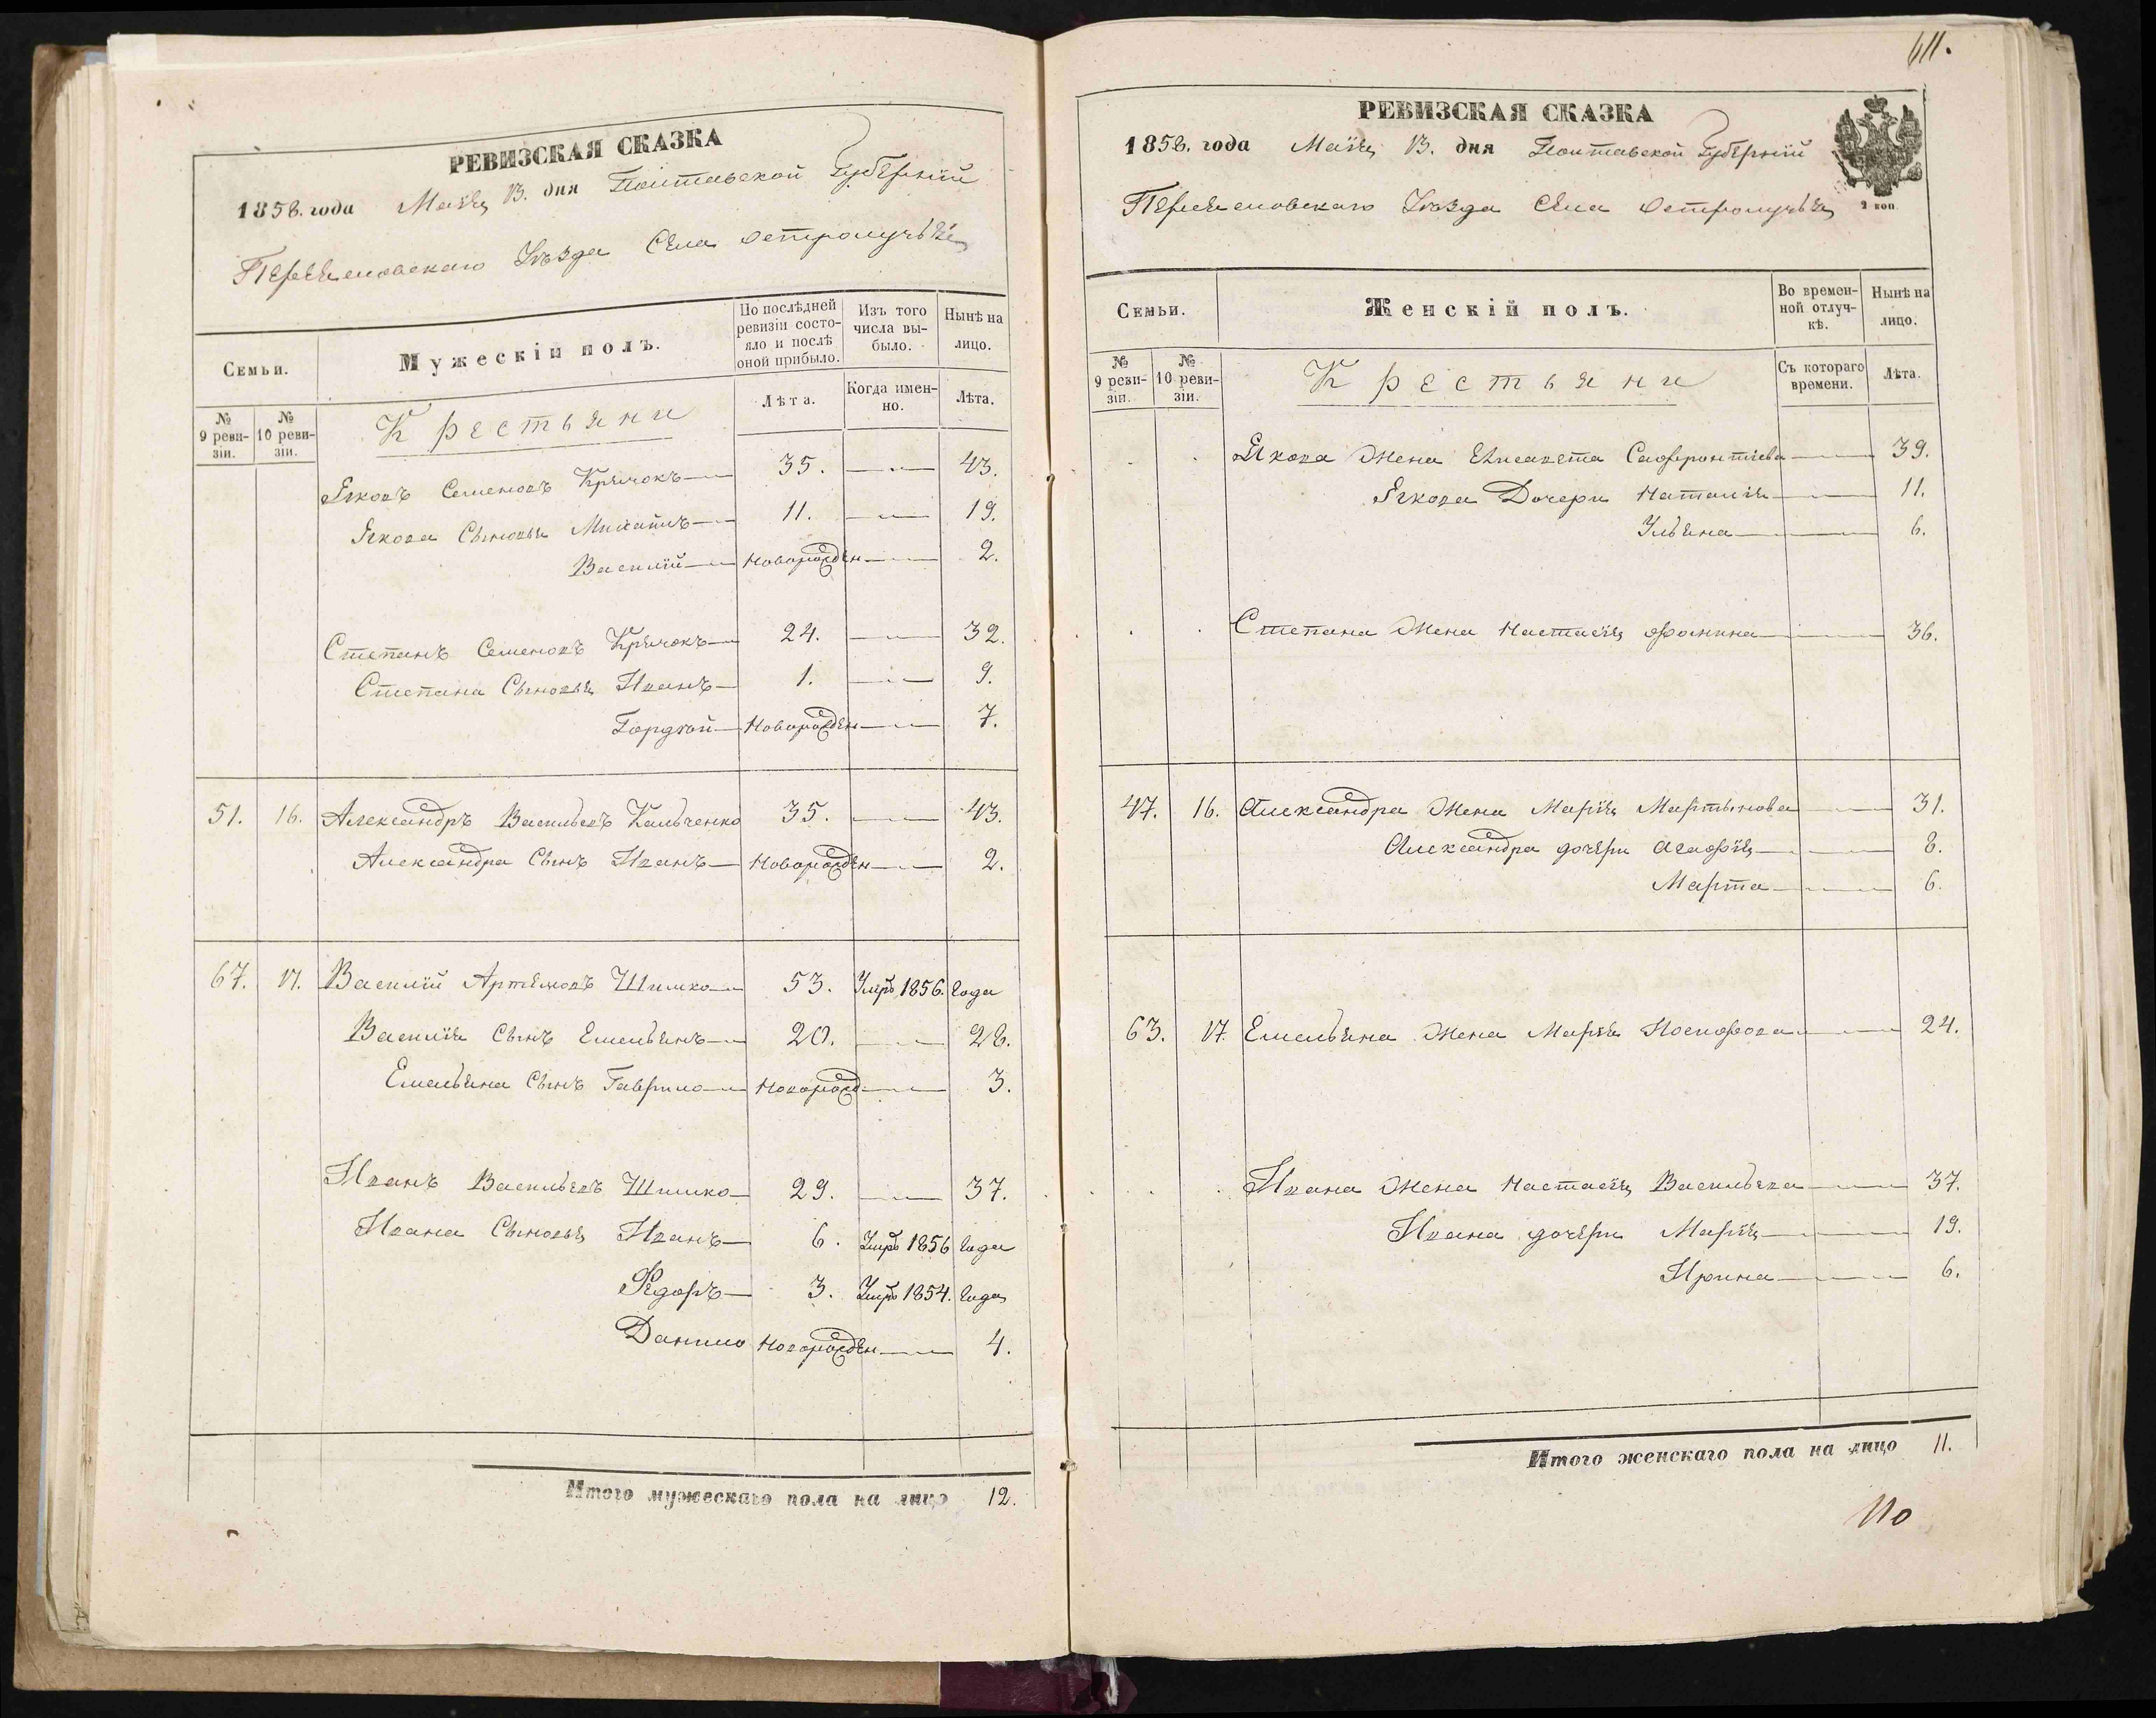 РЕВИЗСКАЯ СКАЗКА
1858. года Маія 13. дня Полтавской Губерніи
Переяславскаго Уѣзда Села Остролучья
Семьи.
Мужескій полъ.
По послѣдней ревизіи состояло и послѣ оной прибыло.
Изъ того числа выбыло.
Нынѣ на лицо.
№ 9 ревизіи.
№ 10 ревизіи.
Крестьяни
Лѣта.
Когда именно.
Лѣта.
Яковъ Семеновъ Крючокъ 35. 43.
Якова Сыновья Михаилъ 11. 19.
Василій Новорожден 2.
Степанъ Семеновъ Крючокъ 24. 32.
Степана Сыновья Иванъ 1. 9.
Гордѣй Новорожден 7.
51. 16. Александръ Васильевъ Кальченко 35. 43.
Александра Сынъ Иванъ Новорожден 2.
67. 17. Василій Артемовъ Шишко 53. Умръ 1856. Года
Василія Сынъ Емельянъ 20. 28.
Емельяна Сынъ Гаврило Новорожд 3.
Иванъ Васильевъ Шишко 29. 37.
Ивана Сыновья Иванъ 6. Умръ 1856 Года
Федоръ 3. Умръ 1854. Года
Данило Новорожден 4.
Итого мужескаго пола на лицо 12.
611.
РЕВИЗСКАЯ СКАЗКА
1858. года Маія 13. дня Полтавской Губерніи
2 коп.
Переяславскаго Уѣзда Села Остролучья
Семьи.
Женскій полъ.
Во временной отлучкѣ.
Нынѣ на лицо.
№ 9 ревизіи.
№ 10 ревизіи.
Крестьяни
Съ котораго времени.
Лѣта.
Якова Жена Елисавета Сафронтіева 39.
Якова Дочери Наталія 11.
Ульяна 6.
Степана Жена Настасія Фомина 36.
47. 16. Александра Жена Марія Мартынова 31.
Александра дочери Агафія 8.
Марта 6.
63. 17. Емельяна Жена Марія Иосифова 24.
Ивана Жена Настасія Васильева 37.
Ивана дочери Марія 19.
Ирина 6.
Итого женскаго пола на лицо 11.
110